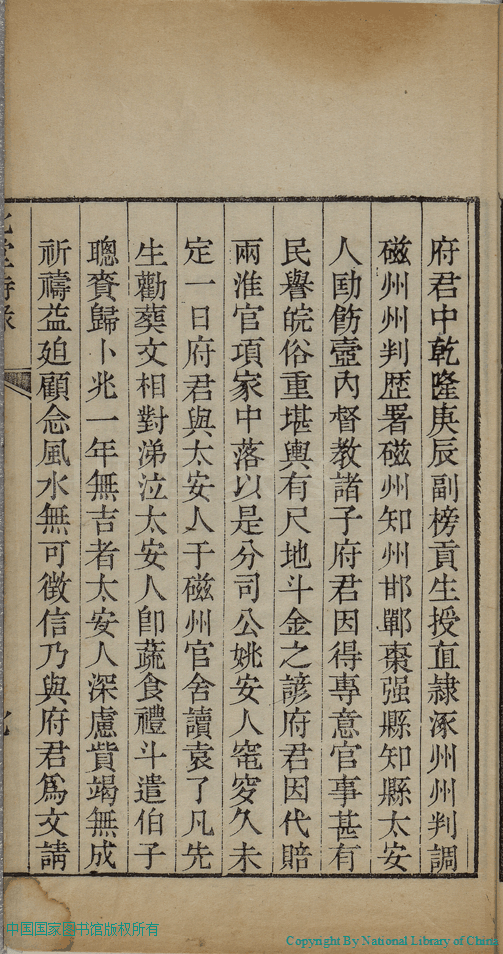 府君中乾隆庚辰副榜貢生授直隸涿州州判調
磁州州判歴署磁州知州邯鄲棗强縣知縣太安
人勖飭壼內督教諸子府君因得專意官事甚有
民譽皖俗重堪輿有尺地斗金之諺府君因代賠
兩淮官項家中落以是分司公姚安人窀穸久未
定一日府君與太安人于磁州官舍讀袁了凡先
生勸葬文相對涕泣太安人卽蔬食禮斗遣伯子
聰賫歸卜兆一年無吉者太安人深慮貲竭無成
祈禱益廹顧念風水無可徵信乃與府君爲文請
中国国家图书馆版权所有
Copyright By National Library of China